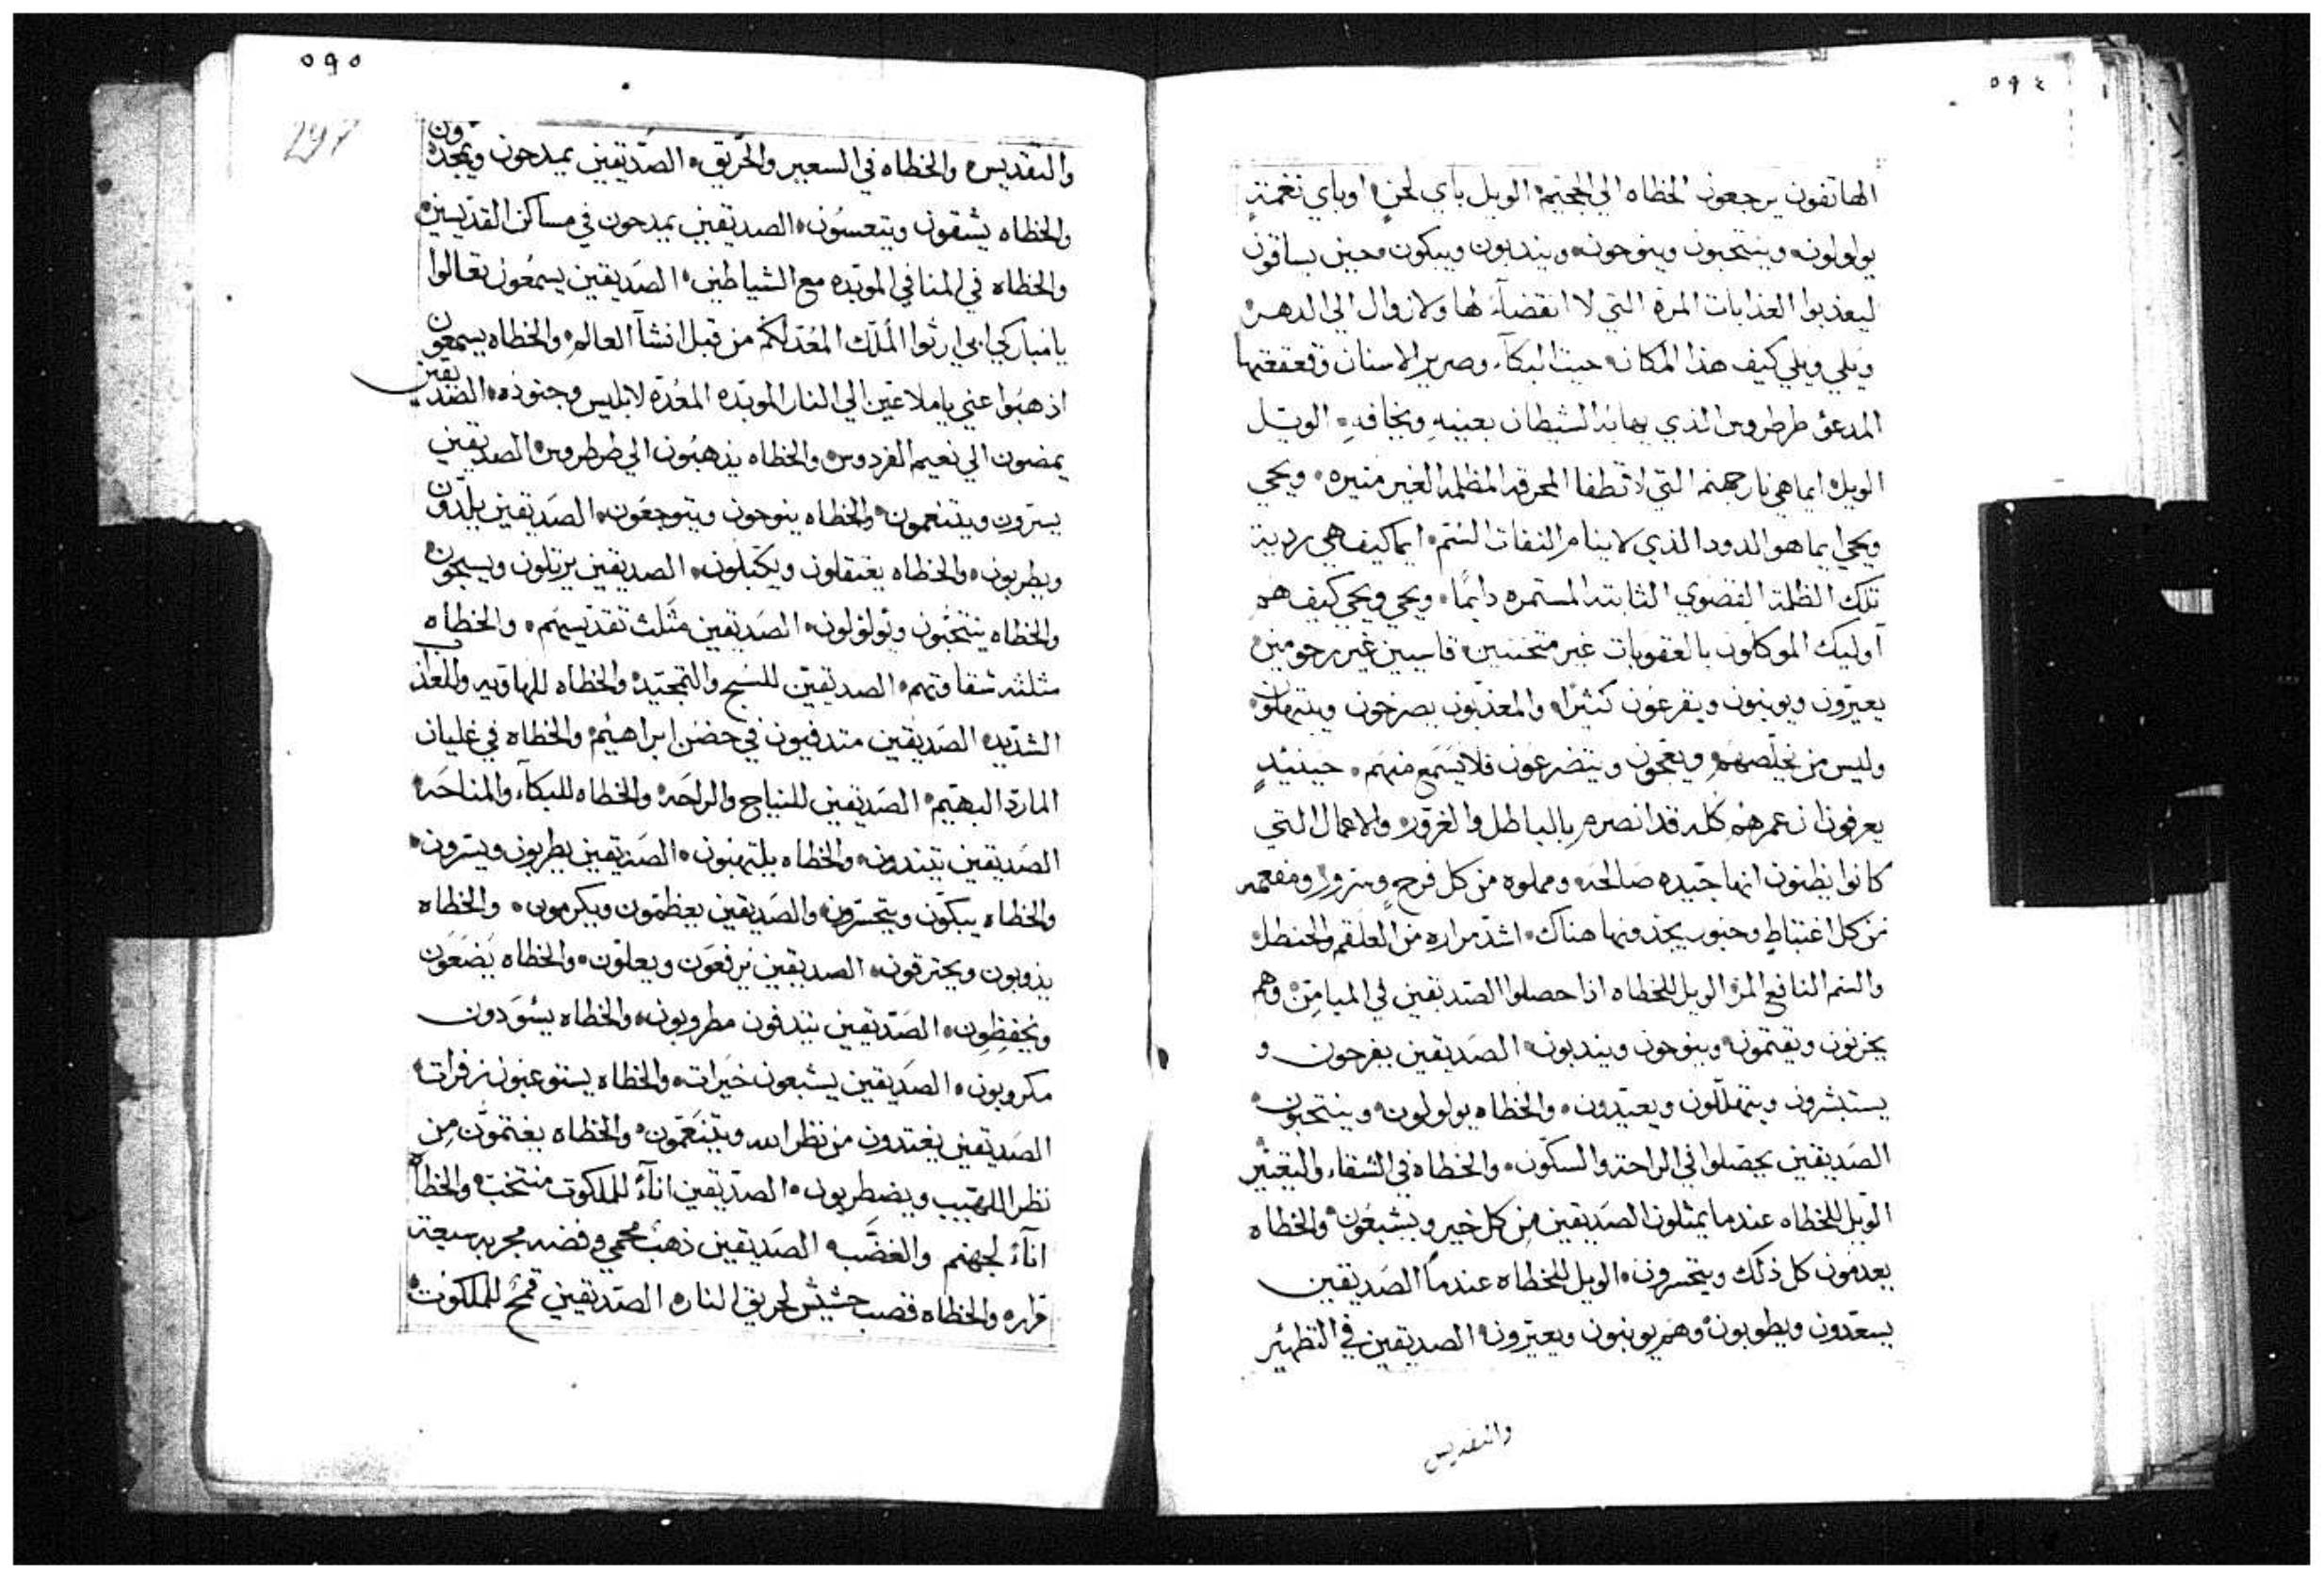 ٥٩٤
الهاتفون يرجعون الخطاه الي الجحيم الويل باي لحنٍ اوباي نغمنةٍ
يولولون وينتحبون وينوحون ويندبون ويبكون حين يساقون
ليعذبوا العذابات المرة التي لا انقضآء لها ولا زوال الي الدهر
ويلي ويلي كيف هذا المكان حيث البكآء وصرير الاسنان وقعقعتها
المدعو طرطروس الذي يهابه الشيطان بعينهِ ويخافه الويل
الويل ايما هي نار جهنم التي لا تطفا المحرقه المظلمه الغير منيره ويحي
ويحي ايما هو الدود الذي لا ينام النفات السم ايما كيف هي ردية
تلك الظلمة القصوي الثابته المستمره دايمًا ويحي ويحي كيف هم
اوليك الموكلون بالعقوبات غير متحننين قاسيين غير رحومين
يعيّرون ويوبنون ويقرعون كثيرًا والمعذبون يصرخون ويبتهلون
وليس من يخلّصهم ويعجون ويتضرعون فلا يسمع منهم حينئيذٍ
يعرفون ان عمرهم كله قد انصرم بالباطل والغرور والاعمال التي
كانوا يظنون انها جيده صالحه ومملوه من كل فرحٍ وسرور ومفعمه
من كل اغتباطٍ وحبور يجدونها هناك اشد مراره من العلقم والحنظل
والسم الناقع المر الويل للخطاه اذا حصلوا الصديقين في الميامين وهم
يحزنون ويغتمون وينوحون ويندبون الصديقين يفرحون و
يستبشرون ويتهللون ويعيّدون والخطاه يولولون وينتحبون
الصديقين يحصلوا في الراحة والسكون والخطاه في الشقاء والتعثر
الويل للخطاه عندما يمثلون الصديقين من كل خير ويشبعون والخطاه
يعدمون كل ذلك ويتحسرون الويل للخطاه عندما الصديقين
يسعّدون ويطوبون وهم يوبنون ويعيّرون الصديقين في التطهير
والتقديس
٥٩٥
297
والتقديس والخطاه في السعير والحريق الصّديقين يمدحون ويمجدون
والخطاه يشقون ويتعسون الصديقين يمدحون في مساكن القديسين
والخطاه في المنافي الموبده مع الشياطين الصديقين يسمعون تعالوا
يا مباركي ابي ارثوا الملك المعد لكم من قبل انشآ العالم والخطاه يسمعون
اذهبوا عني يا ملاعين الي النار الموبده المعدّه لابليس وجنوده الصديقين
يمضون الي نعيم الفردوس والخطاه يذهبون الي طرطروس الصديقين
يسّرون ويتنعمون والخطاه ينوحون ويتوجعون الصديقين يلذّون
ويطربون والخطاه يعتقلون ويكبلون الصديقين يرتلون ويسبحون
والخطاه ينتحبون ويولولون الصديقين مثلث تقديسهم والخطاه
مثلثه شقاوتهم الصديقين للسبح والتمجيد والخطاه للهاويه وللعذاب
الشديد الصديقين متدفيون في حضن ابراهيم والخطاه في غليان
المارد البهيم الصديقين للنياح والراحه والخطاه للبكآء والمناحه
الصديقين يتندون والخطاه يلتهبون الصديقين يطربون ويسرون
والخطاه يبكون ويتحسرون والصديقين يعظمون ويكرمون والخطاه
يذوبون ويحترقون الصديقين يرفعون ويعلون والخطاه يضعون
ويخفظون الصديقين يتدفون مطروبون والخطاه يسوَدون
مكروبون الصديقين يشبعون خيرات والخطاه يستوعبون زفرات
الصديقين يغتدون من نظر الله ويتنعمون والخطاه يغتمون من
نظر اللهيب ويضطربون الصديقين انآء للملكوت منتخب والخطاه
انآء لجهنم والغضب الصديقين ذهب محمي وفضه مجربه سبعة
قراره والخطاه قصب حشيش لحريق النار الصديقين قمح للملكوت